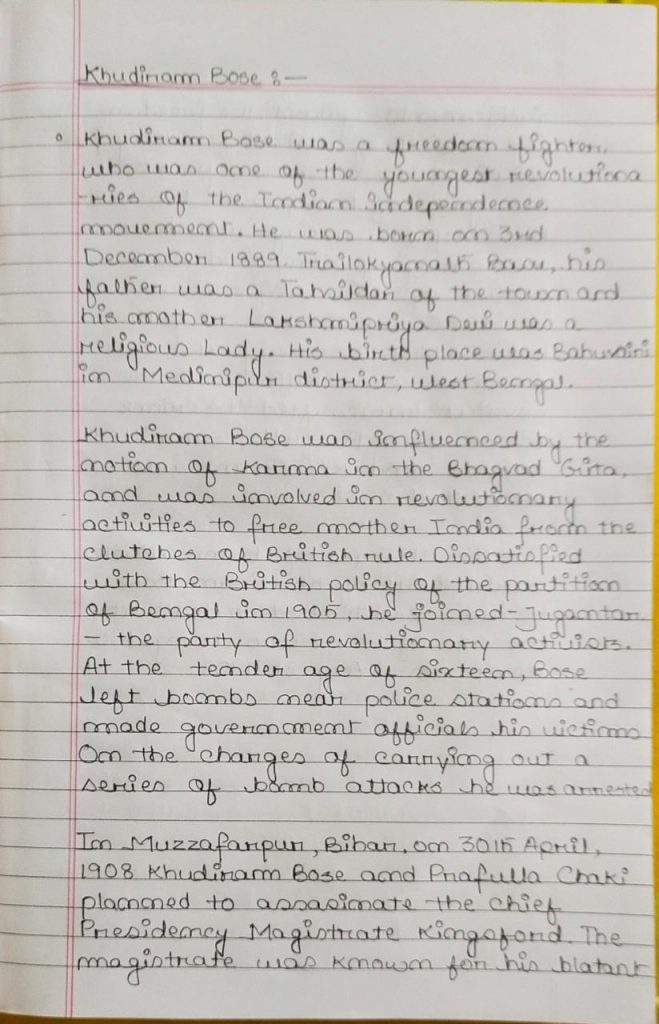 Khudiram Bose :-
Khudiram Bose was a freedom fighter.
who was one of the youngest revolutiona
-ries of the Indian independence
movement. He was born on 3rd
December 1889. Trailokyanath Basu, his
father was a Tahsildar of the town and
his mother Lakshmipriya Devi was a
religious Lady. His birth place was
in Medinipur district, West Bengal.
Khudiram Bose was influenced by the
notion of Karma in the Bhagvad Gita,
and was involved in revolutionary
activities to free mother India from the
clutches of British rule. Dissatisfied
with the British policy of the partition
of Bengal in 1905, he joined - Jugantar
- the party of revolutionary activists.
At the tender age of sixteen, Bose
left bombs near police stations and
made government officials his victims
On the charges of carrying out a
series of bomb attacks he was arrested
In Muzzafarpur, Bihar, on 30th April,
1908 Khudiram Bose and Prafulla Chaki
planned to assasinate the chief
Presidency Magistrate Kingsford. The
magistrate was known for his blatant